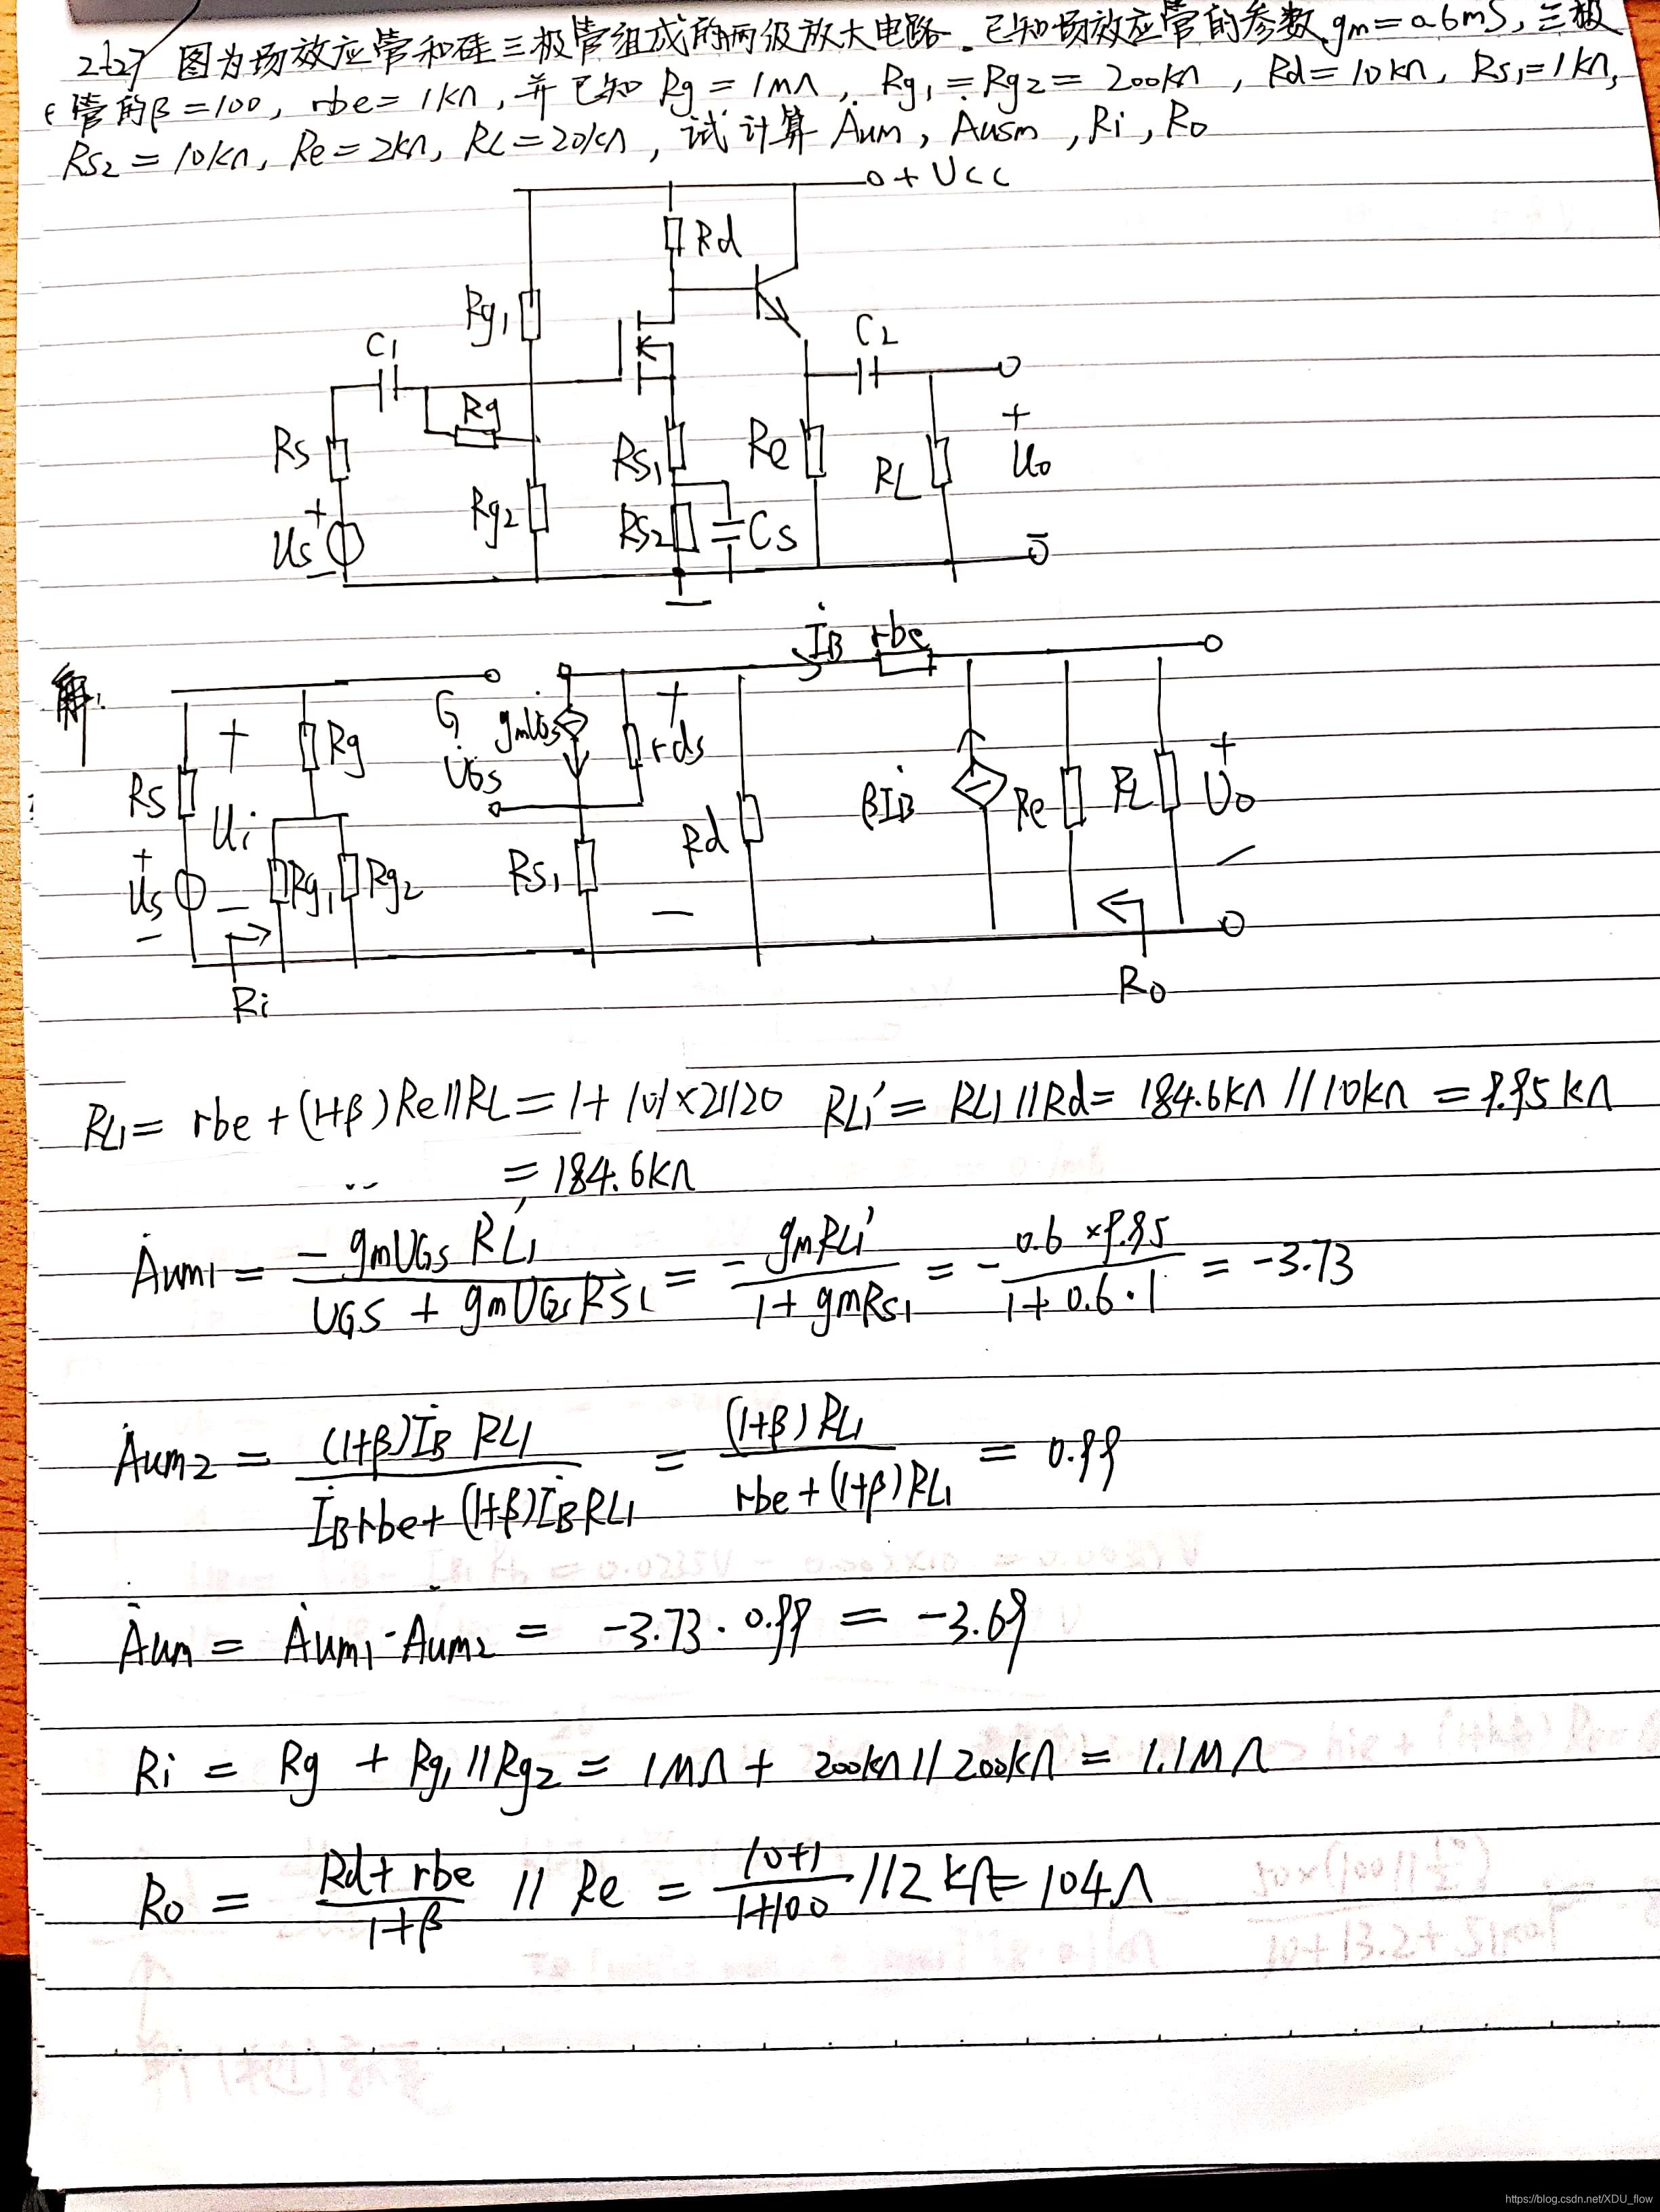 2-27 图为场效应管和硅三极管组成的两级放大电路.已知场效应管的参数gm=0.6mS,三极
管的β=100, rbe=1kΩ,并已知Rg=1MΩ, Rg1=Rg2=200kΩ, Rd=10kΩ, Rs1=1kΩ,
Rs2=10kΩ, Re=2kΩ, RL=20kΩ, 试计算Aum, Ausm, Ri, Ro
+Ucc
Rd
Rg1
C1
C2
Rg
Rs
Rs1
Re
RL
+
Uo
-
Rg2
Rs2
Cs
+
Us
-
解:
İB rbe
G
U̇GS
gmU̇GS
rds
+
-
Rg
Rs
+
Ui
-
Rd
βİB
Re
RL
+
Uo
-
+
Us
-
Rg1
Rg2
Rs1
Ri
Ro
RL1= rbe+(1+β)Re//RL=1+101×2//20 RL1'=RL1//Rd=184.6kΩ//10kΩ=9.95kΩ
=184.6kΩ
Ȧum1 = -gmUGS RL1' / UGS + gmUGSRS1 = - gmRL1' / 1+gmRS1 = - 0.6×9.95 / 1+0.6·1 = -3.73
Ȧum2 = (1+β)İB RL1 / İBrbe+(1+β)İBRL1 = (1+β)RL1 / rbe+(1+β)RL1 = 0.99
Ȧum = Ȧum1·Ȧum2 = -3.73·0.99 = -3.69
Ri = Rg + Rg1//Rg2 = 1MΩ + 200kΩ//200kΩ = 1.1MΩ
Ro = Rd+rbe / 1+β // Re = 10+1 / 1+100 //2kΩ=104Ω
https://blog.csdn.net/XDU_flow